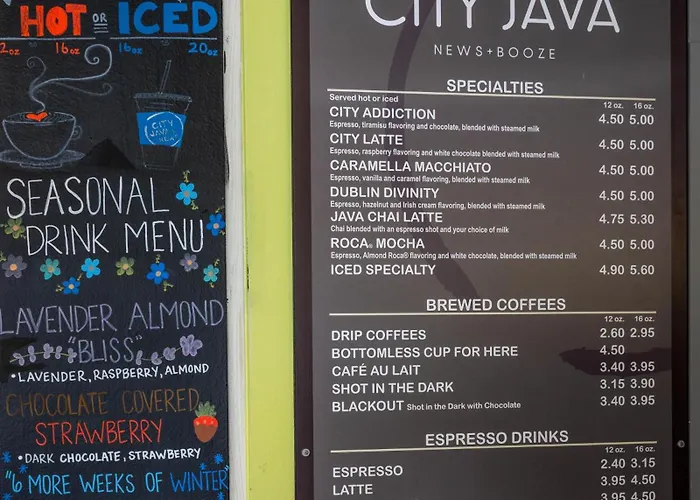 HOT OR ICED
2oz 16oz 16oz 20oz
CITY
JAVA
SEASONAL
DRINK MENU
LAVENDER ALMOND
"BLISS"
• LAVENDER, RASPBERRY, ALMOND
CHOCOLATE COVERED
STRAWBERRY
• DARK CHOCOLATE, STRAWBERRY
"6 MORE WEEKS OF WINTER"
CITY JAVA
NEWS+BOOZE
SPECIALTIES
Served hot or iced 12 oz. 16 oz.
CITY ADDICTION 4.50 5.00
Espresso, tiramisu flavoring and chocolate, blended with steamed milk
CITY LATTE 4.50 5.00
Espresso, raspberry flavoring and white chocolate blended with steamed milk
CARAMELLA MACCHIATO 4.50 5.00
Espresso, vanilla and caramel flavoring, blended with steamed milk
DUBLIN DIVINITY 4.50 5.00
Espresso, hazelnut and Irish cream flavoring, blended with steamed milk
JAVA CHAI LATTE 4.75 5.30
Chai blended with an espresso shot and your choice of milk
ROCA® MOCHA 4.50 5.00
Espresso, Almond Roca® flavoring and white chocolate, blended with steamed milk
ICED SPECIALTY 4.90 5.60
BREWED COFFEES
12 oz. 16 oz.
DRIP COFFEES 2.60 2.95
BOTTOMLESS CUP FOR HERE 4.50
CAFÉ AU LAIT 3.40 3.95
SHOT IN THE DARK 3.15 3.90
BLACKOUT Shot in the Dark with Chocolate 3.40 3.95
ESPRESSO DRINKS
12 oz. 16 oz.
ESPRESSO 2.40 3.15
LATTE 3.95 4.50
3.95 4.50